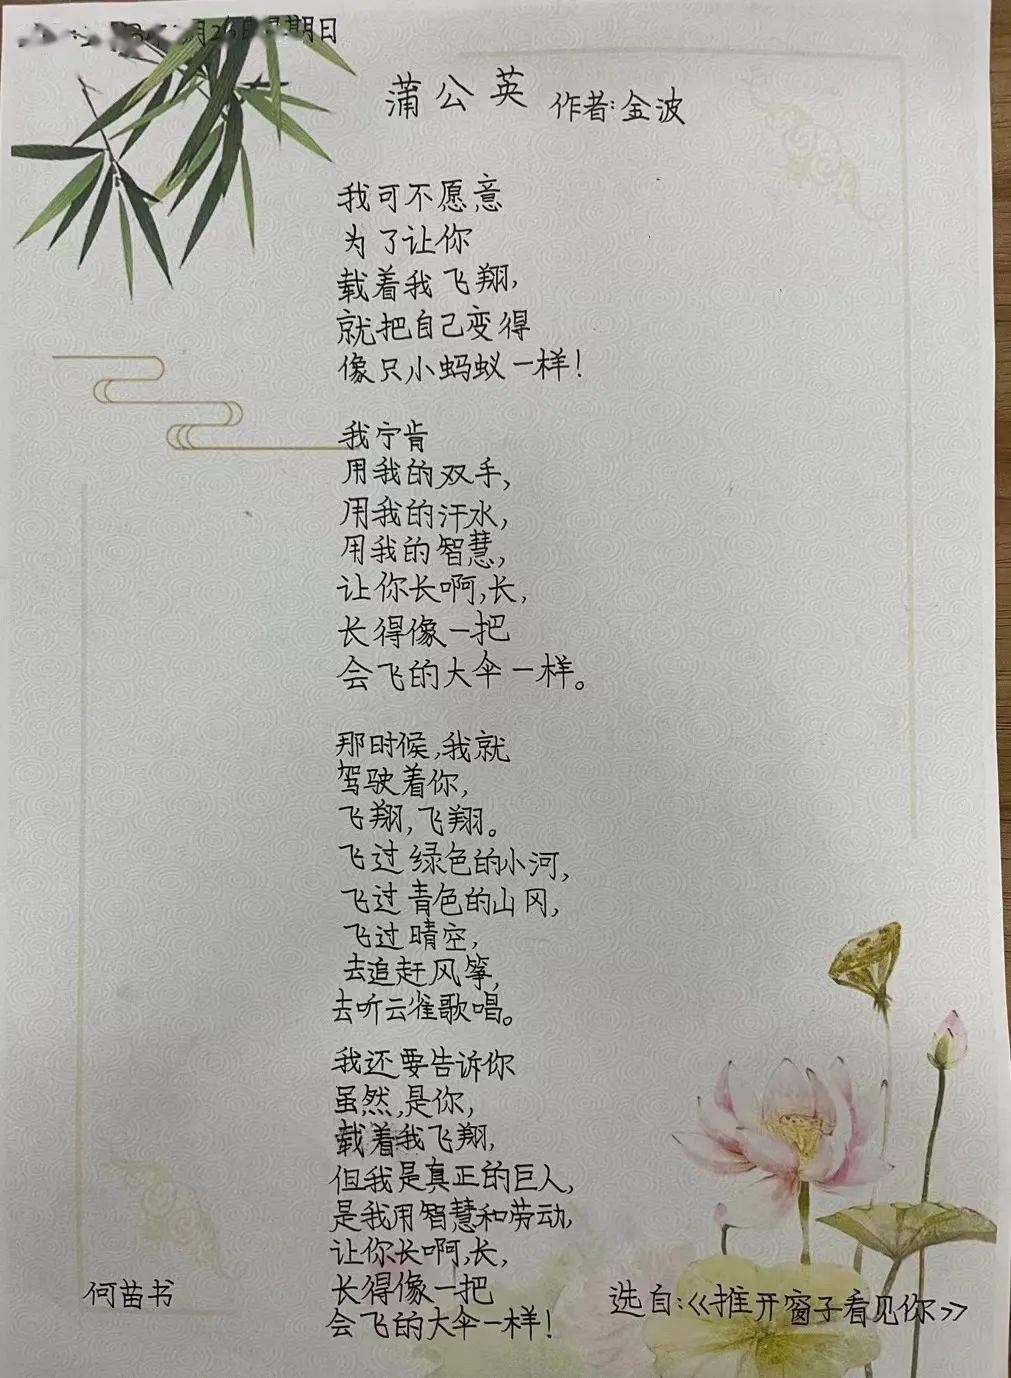 月26日星期日
蒲公英 作者:金波
我可不愿意
为了让你
载着我飞翔,
就把自己变得
像只小蚂蚁一样!
我宁肯
用我的双手,
用我的汗水,
用我的智慧,
让你长啊,长,
长得像一把
会飞的大伞一样。
那时候,我就
驾驶着你,
飞翔,飞翔。
飞过绿色的小河,
飞过青色的山冈,
飞过晴空,
去追赶风筝,
去听云雀歌唱。
我还要告诉你
虽然,是你,
载着我飞翔,
但我是真正的巨人,
是我用智慧和劳动,
让你长啊,长,
长得像一把
会飞的大伞一样!
何苗书
选自:《推开窗子看见你》